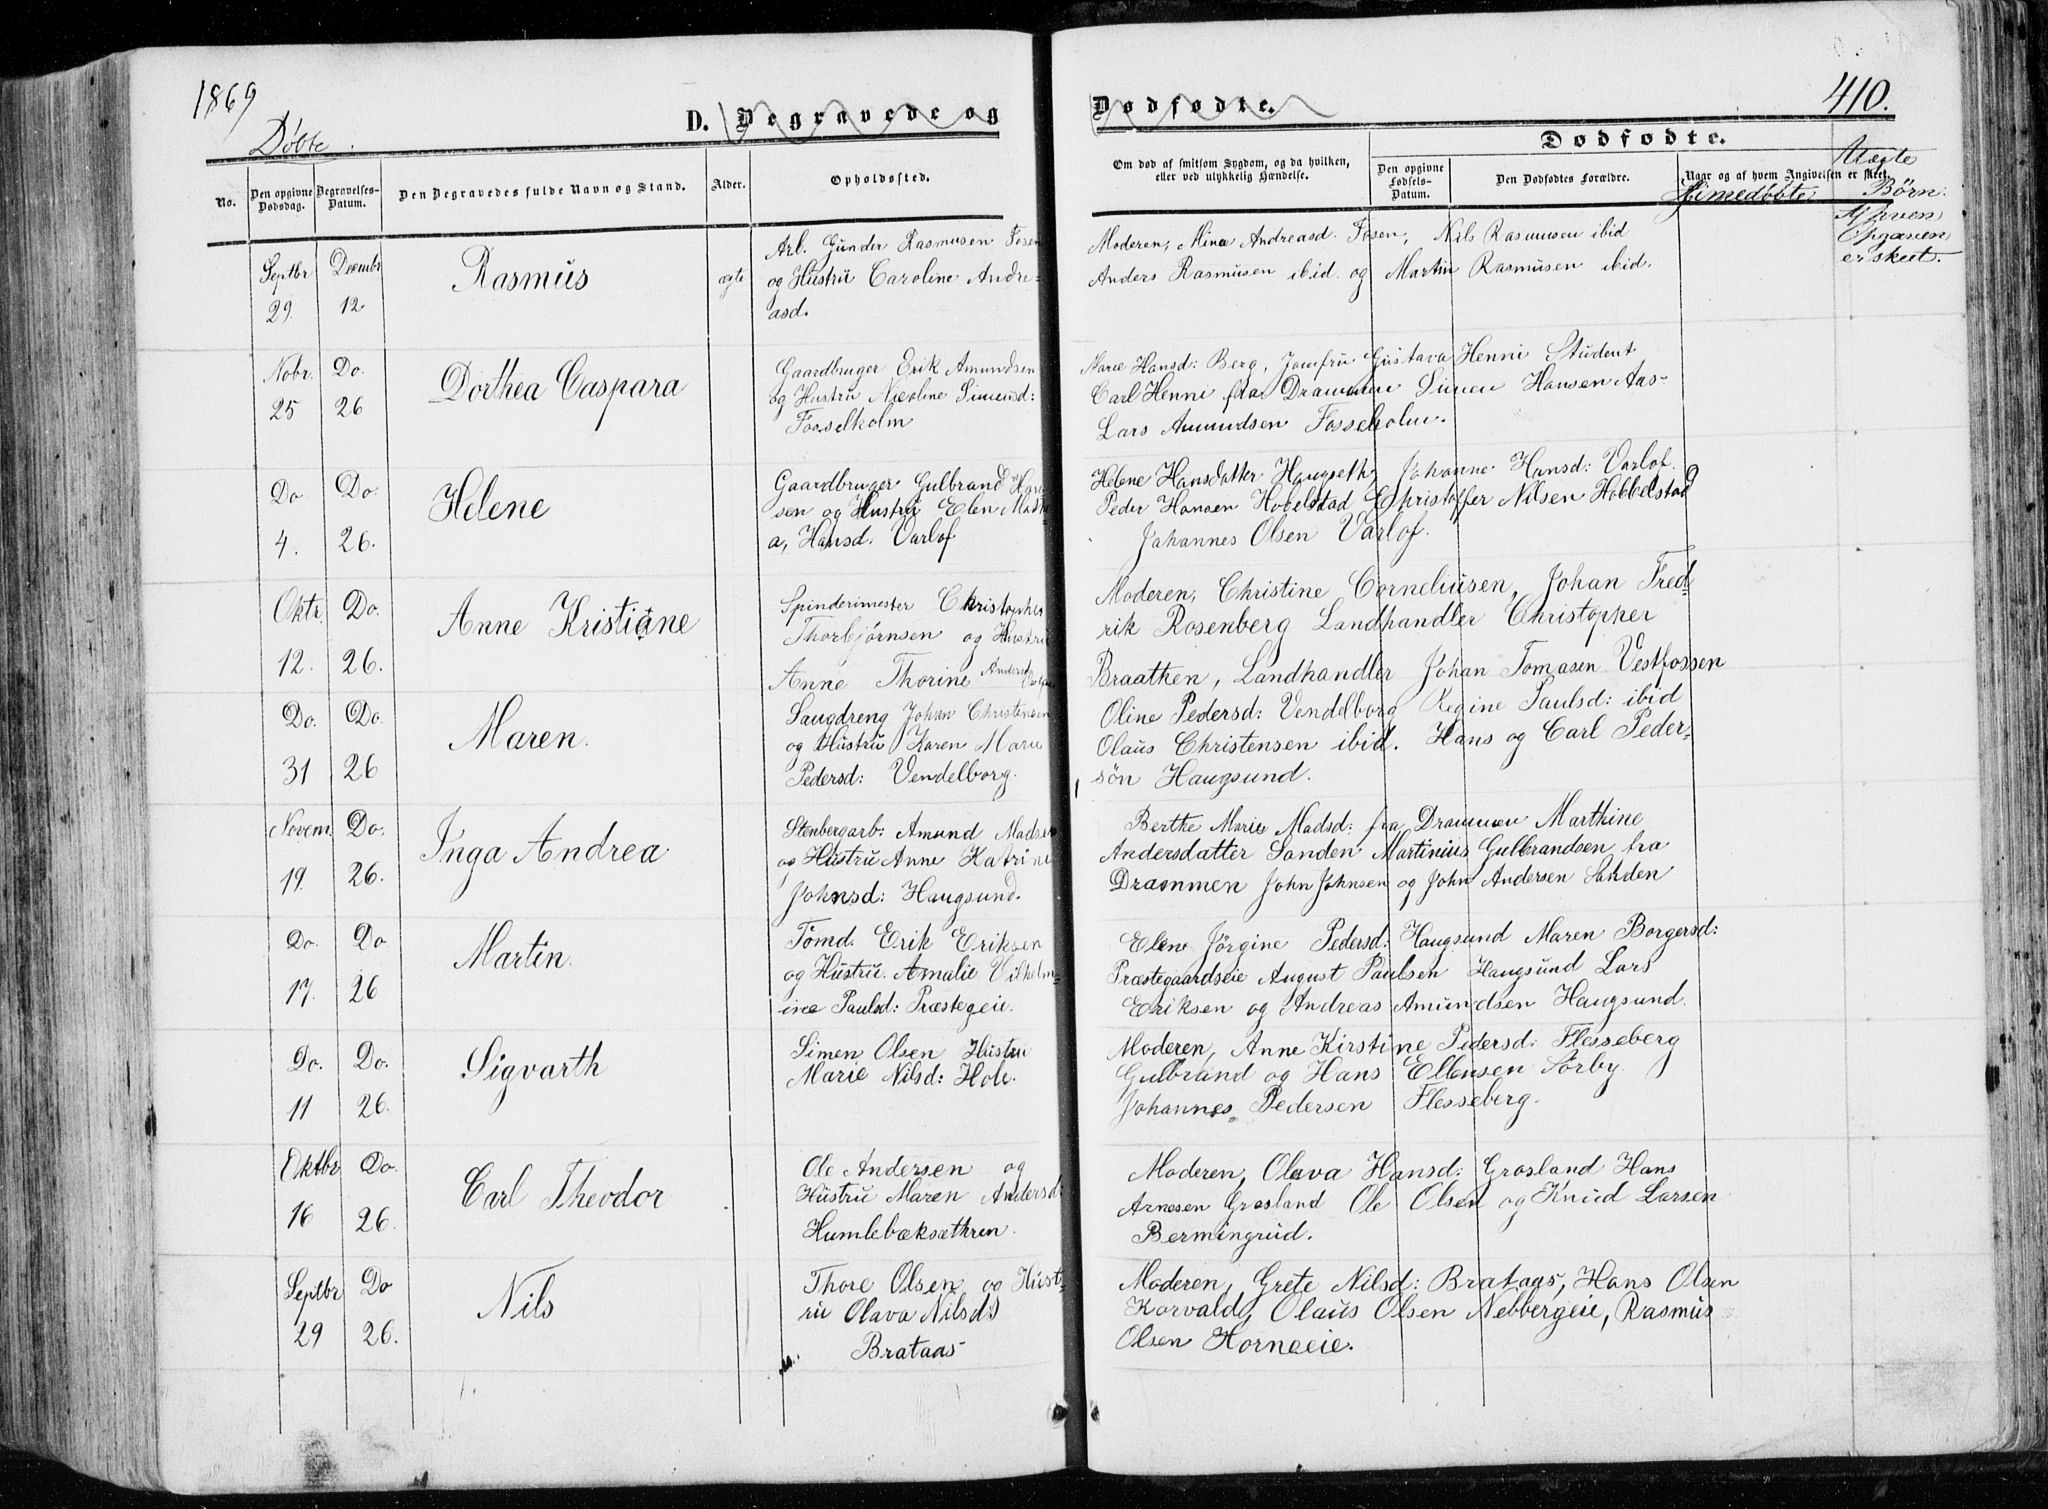 1869
410.
Døbte.
D. Begravede og Dødfødte.
Dødfødte.
No.
Den opgivne Dødsdag.
Begravelses-Datum.
Den Begravedes fulde Navn og Stand.
Alder.
Opholdssted.
Om død af smitsom Sygdom, og da hvilken, eller ved ulykkelig Hændelse.
Den opgivne Fødsels-Datum.
Den Dødfødtes Forældre.
Naar og af hvem Angivelsen er skeet.
Hjemedøbte
Uægte
Børn.
Af hvem
Opgaven
er skeet.
Septbr 29. Decembr 12. Rasmus ægte
Arb. Gunder Rasmusen Fosen
og Hustru Caroline Andre-
asd.
Moderen, Mina Andreasd. Fosen, Nils Rasmusen ibid
Anders Rasmusen ibid. og Martin Rasmusen ibid.
Nobr. 25 Do. 26 Dorthea Caspara
Gaardbruger Erik Amundsen
og Hustru Nicoline Simensd:
Fosselholm
Marie Hansd: Berg, Jomfru Gustava Henni Student
Carl Henni fra Drammen Simen Hansen Aas-
Lars Amundsen Fosseholm.
Do 4. Do. 26. Helene
Gaardbruger Gulbrand Han
sen og Hustru Elen Math
a, Hansd. Varlof
Helene Hansdatter Haugseth, Johanne Hansd: Varlof.
Peder Hansen Hobelstad Christoffer Nilsen Hobbelstad
Johannes Olsen Varlof.
Oktr. 12. Do. 26. Anne Kristiane
Spinderimester Christopher
Thorbjørnsen og Hustru
Anne Thorine Andersd
Moderen, Christine Corneliusen, Johan Fred-
rik Rosenberg Landhandler Christopher
Braathen, Landhandler Johan Tomasen Vestfossen
Do. 31 Do. 26 Maren.
Saugdreng Johan Christensen
og Hustru Karen Marie
Pedersd: Vendelborg.
Oline Pedersd: Vendelborg Regine Paulsd: ibid
Olaus Christensen ibid. Hans og Carl Peder-
søn Haugsund.
Novem. 19. Do. 26. Inga Andrea
Stenbergarb: Amund Madsen
og Hustru Anne Katrine
Johnsd: Haugsund.
Berthe Marie Madsd: fra Drammen Marthine
Andersdatter Sanden Martinius Gulbrandsen fra
Drammen John Johnsen og John Andersen Sanden
Do. 17. Do 26 Martin.
Tömd. Erik Eriksen
og Hustru. Amalie Vilhelm-
ine Paulsd: Præstegeie.
Elene Jörgine Pedersd. Haugsund Maren Borgersd:
Præstegaardseie August Paulsen Haugsund Lars
Eriksen og Andreas Amundsen Haugsund.
Do. 11 Do. 26. Sigvarth
Simen Olsen Hustru
Marie Nilsd: Hole.
Moderen, Anne Kirstine Pedersd: Flesseberg
Gulbrand og Hans Ellensen Sørby.
Johannes Pedersen Flesseberg.
Oktbr 16 Do. 26. Carl Theodor
Ole Andersen og
Hustru Maren Andersd:
Humlebæksæthren.
Moderen, Olava Hansd: Grosland Hans
Arnesen Grosland Ole Olsen og Knud Larsen
Bermingrud.
Septbr 29 Do 26. Nils
Thore Olsen og Hust-
ru Olava Nilsd:
Brataas
Moderen, Grete Nilsd: Brataas, Hans Olsen
Korvald, Olaus Olsen Nebbergeie, Rasmus
Olsen Horneeie.